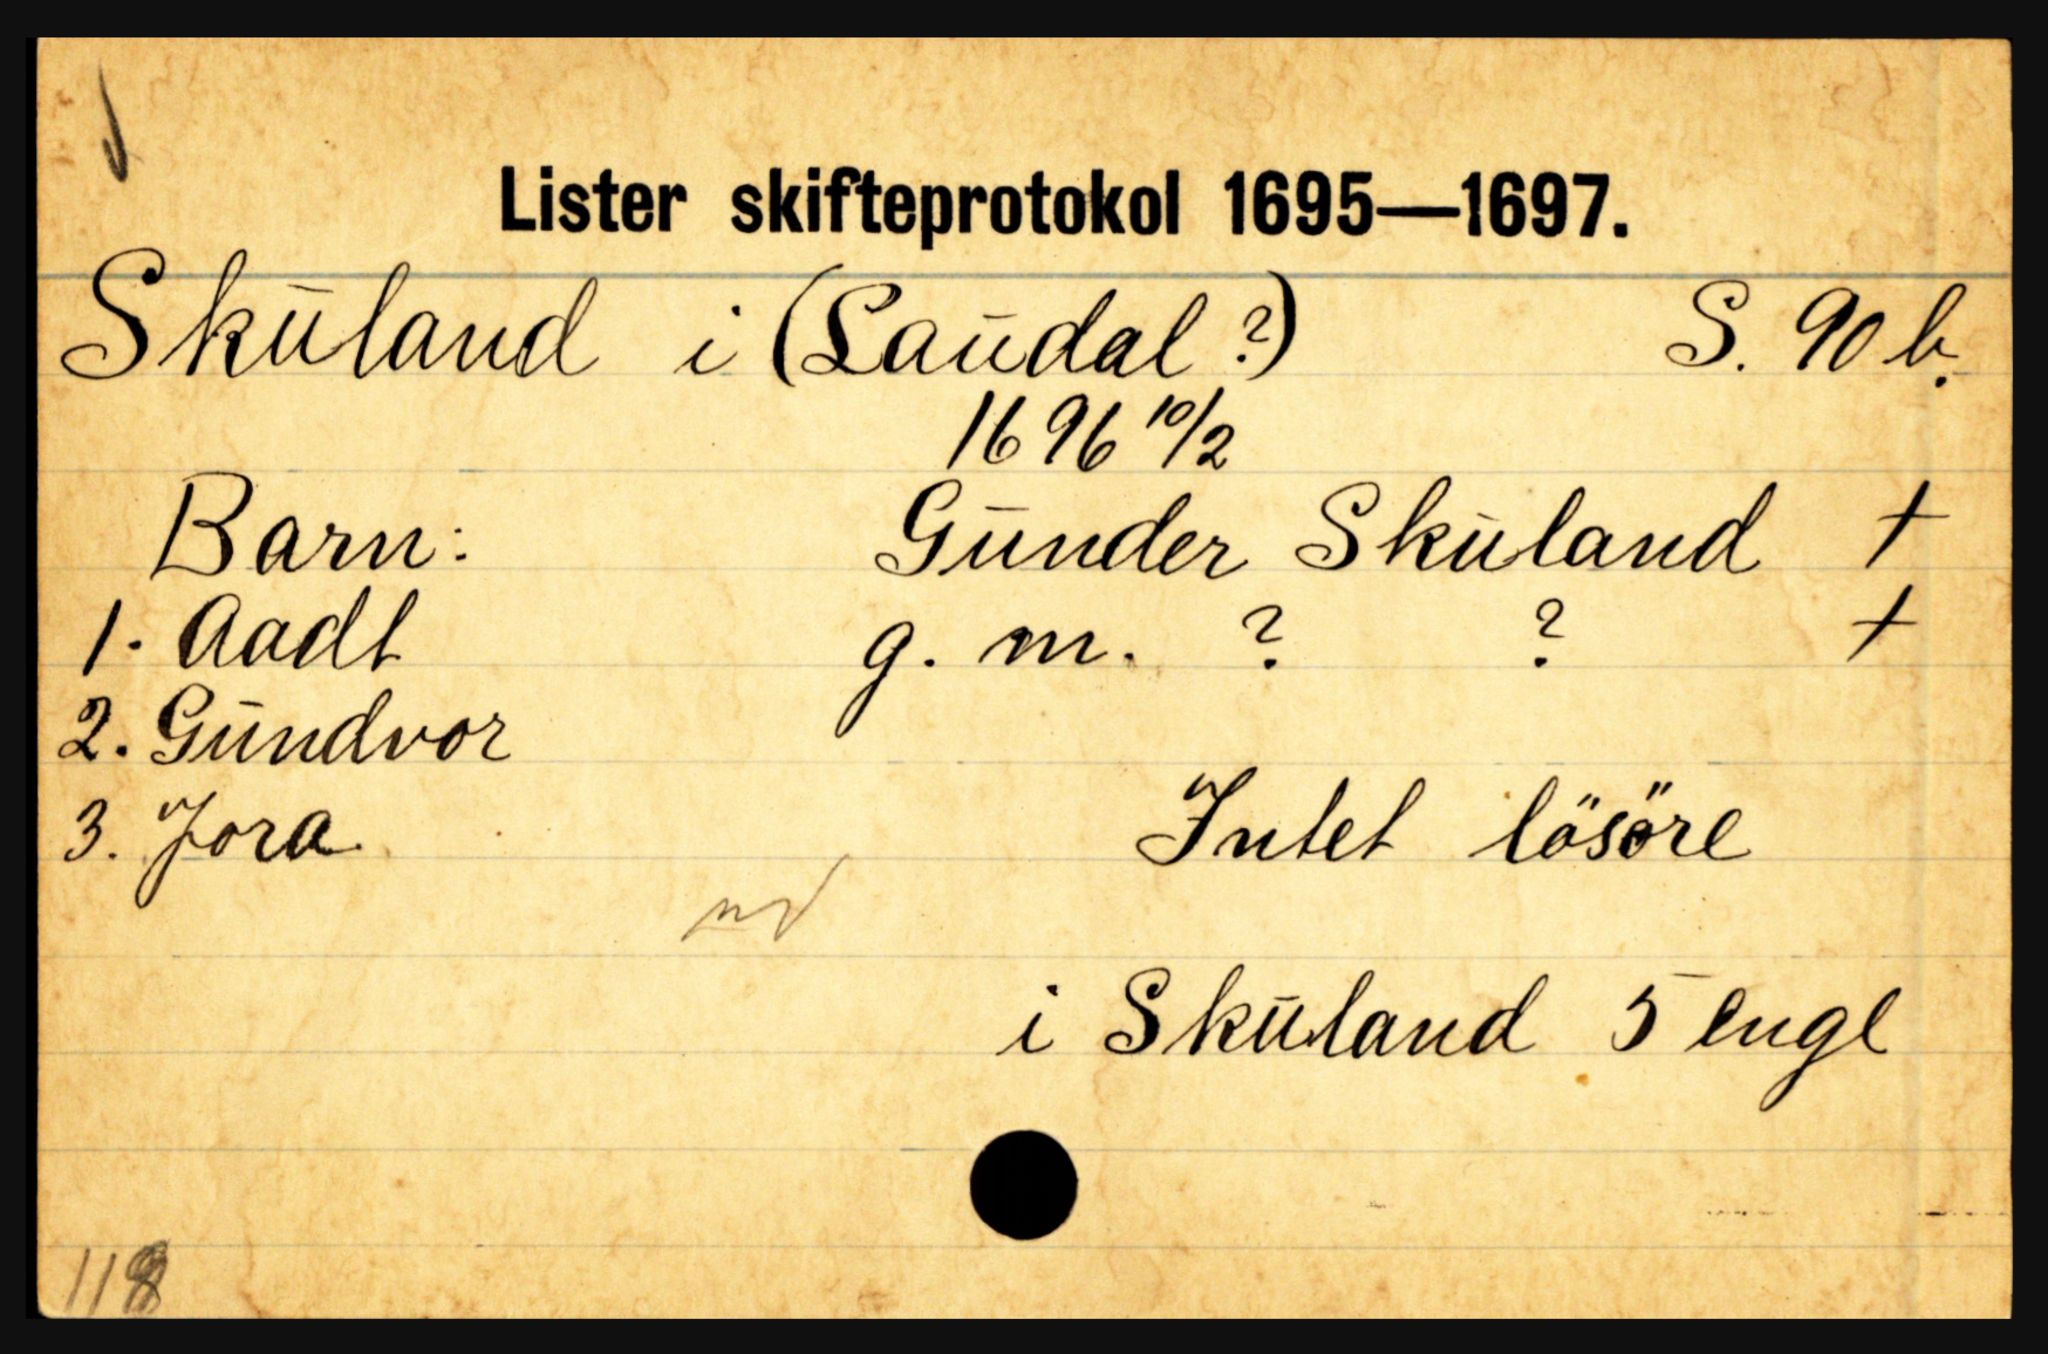 Lister skifteprotokol 1695—1697.
Skuland i (Laudal ?) S. 90 b.
1696 10/2
Barn: Gunder Skuland +
1. Aadt g. m. ? ? +
2. Gundvor
3. Jora Intet lösöre
i Skuland 5 engl
118